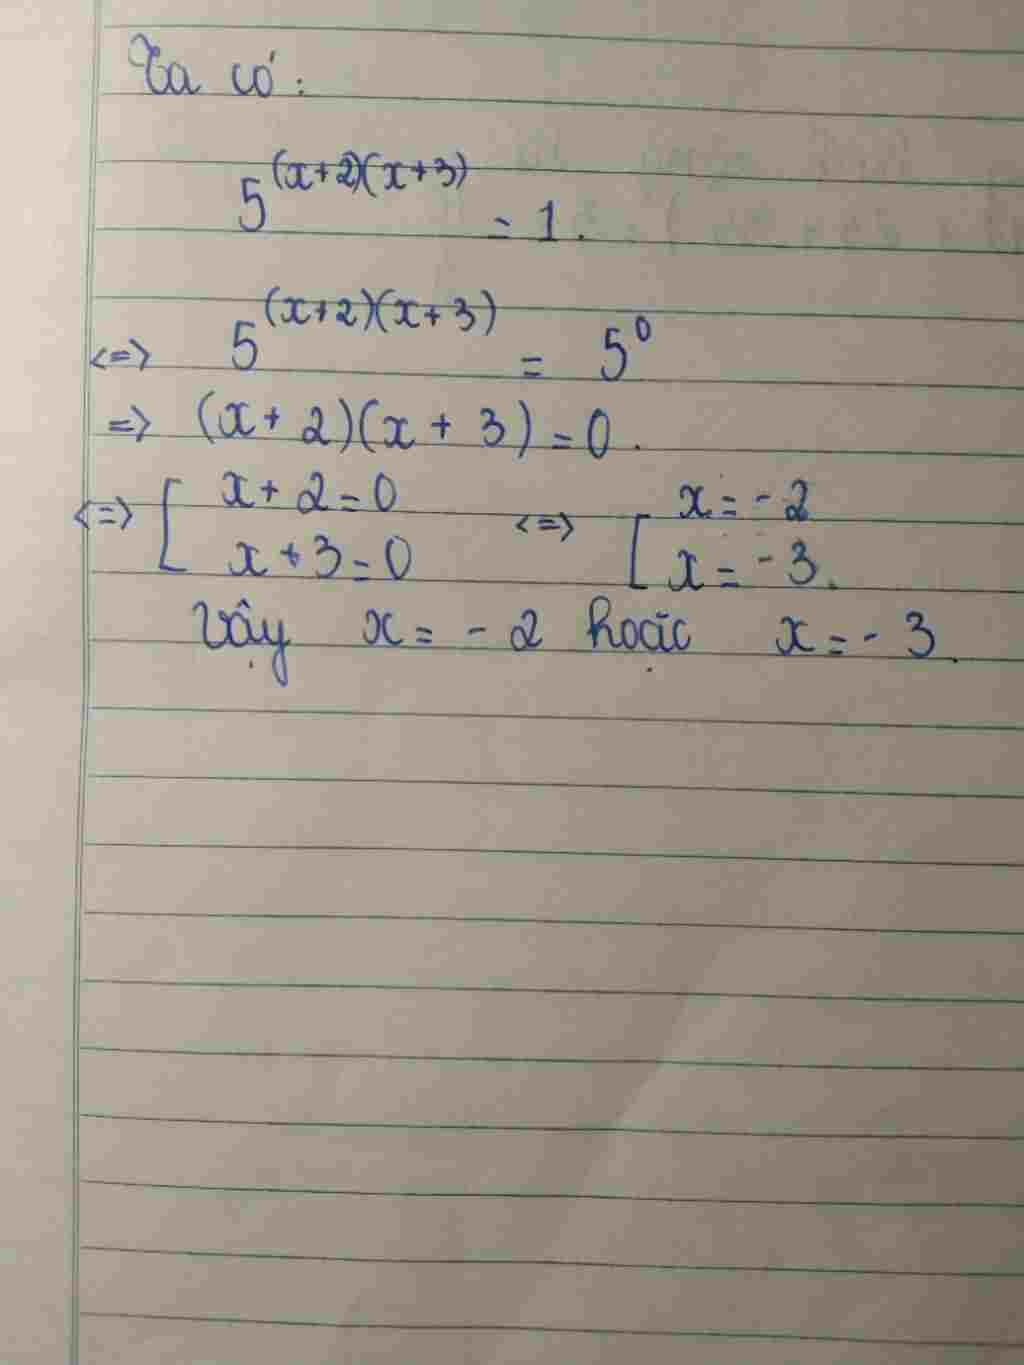 Ta có:
5^{(x+2)(x+3)} = 1.
<=> 5^{(x+2)(x+3)} = 5^0
=> (x+2)(x+3)=0.
<=> [ x+2=0 <=> [ x=-2
x+3=0 x=-3.
Vậy x=-2 hoặc x=-3.